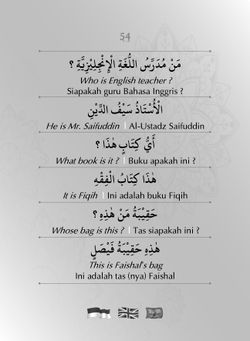 54
مَنْ مُدَرِّسُ اللُّغَةِ الْإِنْجِلِيْزِيَّةِ ؟
Who is English teacher ?
Siapakah guru Bahasa Inggris ?
الْأُسْتَاذُ سَيْفُ الدِّيْنِ
He is Mr. Saifuddin | Al-Ustadz Saifuddin
أَيُّ كِتَابٍ هٰذَا ؟
What book is it ? | Buku apakah ini ?
هٰذَا كِتَابُ الْفِقْهِ
It is Fiqih | Ini adalah buku Fiqih
حَقِيْبَةُ مَنْ هٰذِهِ ؟
Whose bag is this ? | Tas siapakah ini ?
هٰذِهِ حَقِيْبَةُ فَيْصَلٍ
This is Faishal's bag
Ini adalah tas (nya) Faishal